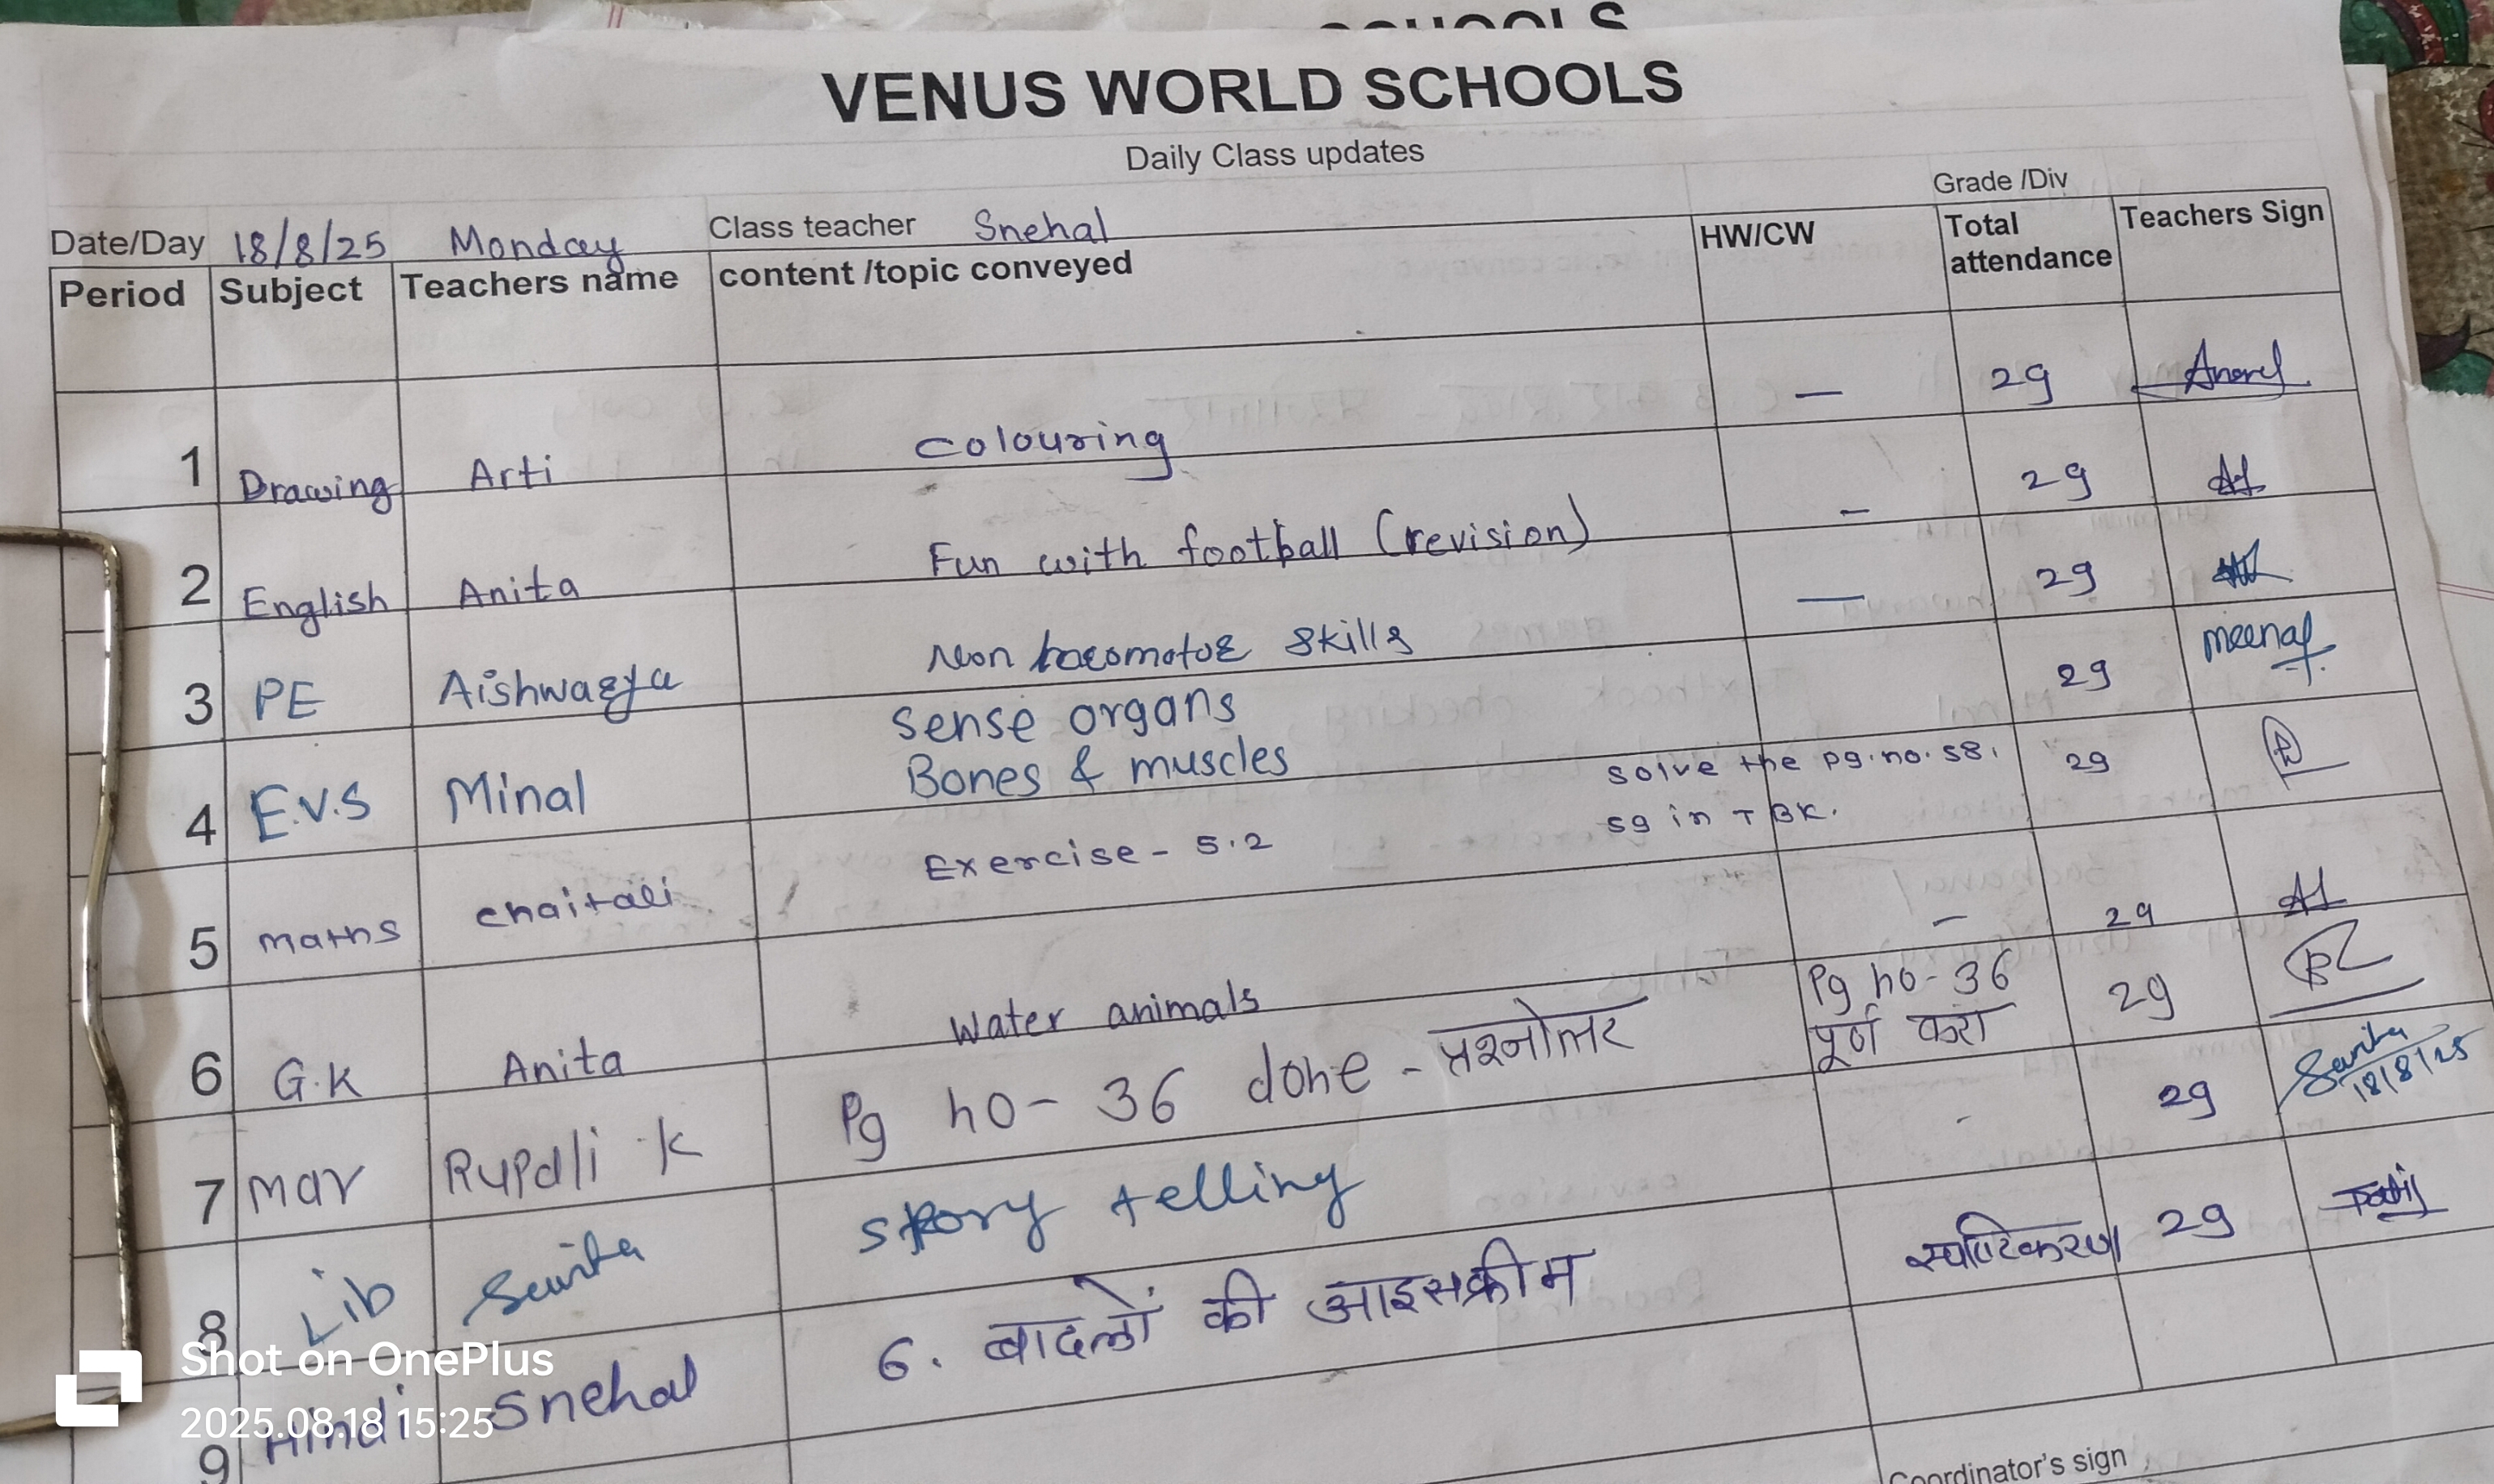 VENUS WORLD SCHOOLS
Daily Class updates
Grade /Div
Date/Day 18/8/25 Monday Class teacher Snehal
Period Subject Teachers name content /topic conveyed HW/CW Total attendance Teachers Sign
1 Drawing Arti colouring — 29
2 English Anita Fun with football (revision) – 29
3 PE Aishwarya Non locomotor skills — 29
4 E.V.S Minal Sense organs 29
Bones & muscles
5 maths chaitali Exercise - 5.2 solve the pg.no. 58, 29
59 in TBK.
6 G.K Anita Water animals – 29
7 Mar Rupali K Pg no - 36 done - प्रश्नोत्तर Pg no - 36 29
पूर्ण करा
8 Lib Savita Story telling - 29 Savita
18/8/25
9 Hindi Snehal 6. बादलों की आइसक्रीम स्पष्टिकरण 29
Coordinator's sign
Shot on OnePlus
2025.08.18 15:25